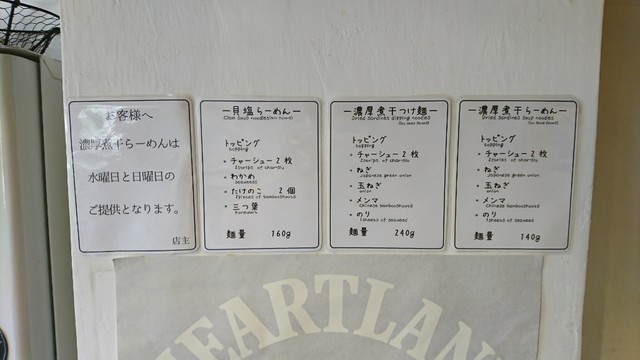 お客様へ
濃厚煮干らーめんは
水曜日と日曜日の
ご提供となります。
店主
ー貝塩らーめんー
Clam soup noodles
トッピング
topping
・チャーシュー 2 枚
・わかめ
seaweed
・たけのこ 2 個
2pieces of bambooshoots
・三つ葉
麺量 160g
ー濃厚煮干つけ麺ー
Dried sardines dipping noodles
トッピング
topping
・チャーシュー 2 枚
・ねぎ
Japanese green onion
・玉ねぎ
onion
・メンマ
Chinese bambooshoots
・のり
1sheets of seaweed
麺量 240g
ー濃厚煮干らーめんー
Dried sardines soup noodles
トッピング
topping
・チャーシュー 2 枚
・ねぎ
Japanese green onion
・玉ねぎ
onion
・メンマ
Chinese bambooshoots
・のり
1sheets of seaweed
麺量 140g
HEARTLAN